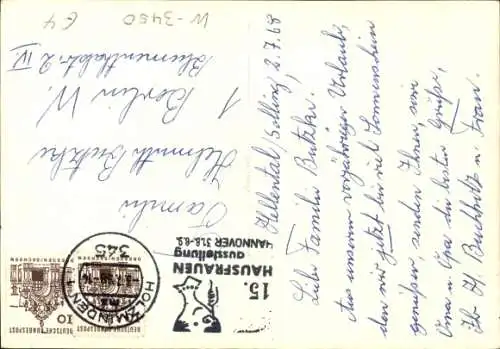 W-3450
E4
Hellental/Solling, 2.7.68
Liebe Familie Butzke.
Aus unserem vorjähriger Urlaub,
den wir jetzt bei viel Sonnenschein
genießen, senden Ihnen, sowie
Oma u. Opa die besten Grüße,
Ihr H Buchholz u. Frau.
Familie
Helmuth Butzke
1 Berlin W.
Blumenthalstr. 2 IV
15.
HAUSFRAUEN
ausstellung
HANNOVER 31.8.-8.9.
345
HOLZMINDEN 1
DEUTSCHE BUNDESPOST
10
DEUTSCHE BUNDESPOST